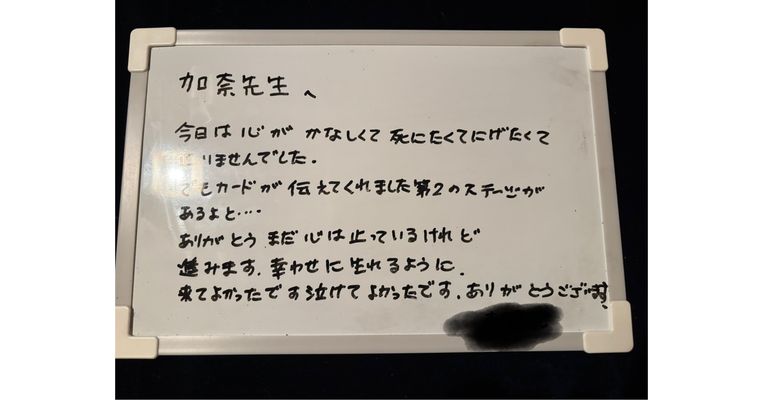 加奈先生へ
今日は心がかなしくて死にたくてにげたくて
りませんでした.
でもカードが伝えてくれました第2のステージが
あるよと‥‥
ありがとう まだ心は止っているけれど
進みます.幸わせに生れるように.
来てよかったです泣けてよかったです.ありがとうございます.